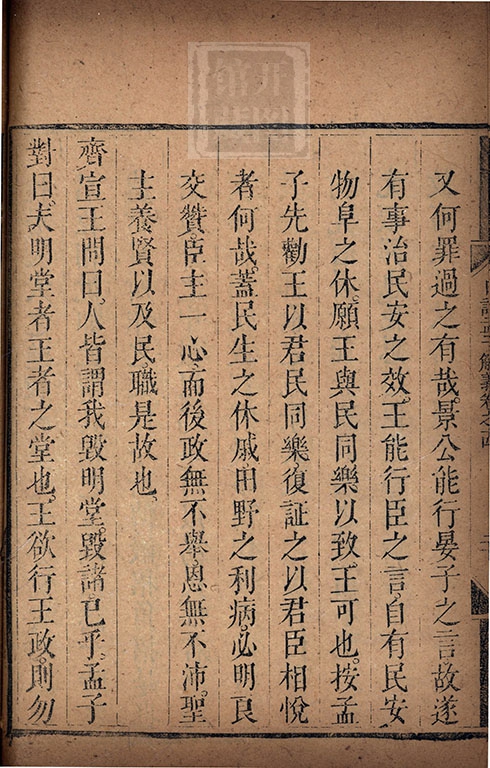 又何罪過之有哉。景公能行晏子之言故遂
有事治民安之效。王能行臣之言自有民安
物阜之休。願王與民同樂以致王可也。按孟
子先勸王以君民同樂。復証之以君臣相悅
者何哉。蓋民生之休戚田野之利病。必明良
交贊。臣主一心。而後政無不舉恩無不沛。聖
主養賢以及民。職是故也。
齊宣王問曰。人皆謂我毀明堂。毀諸。已乎。孟子
對曰。夫明堂者王者之堂也。王欲行王政。則勿